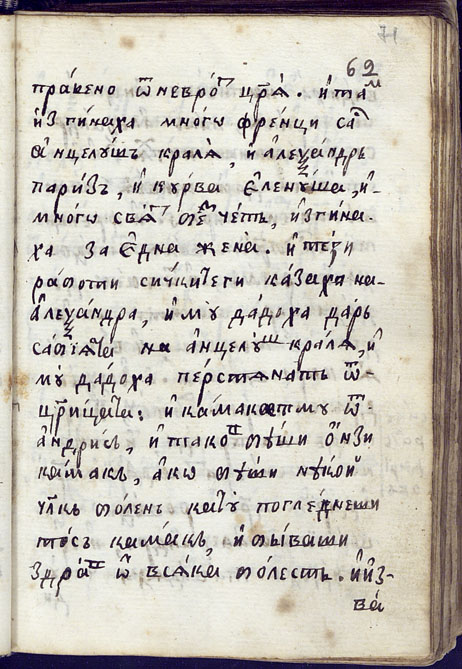 71
62
пра́вено ѿ невро́ⷣ цр҃ѧ̀. и҆ та́ⷨ
и҆згинаха много френци са
а҆нцелꙋшъ кралѧ̀, и҆ а҆леѯа́ндръ
пари́зъ, и҆ кꙋрва є҆ленꙋ́ша, и҆
много свѧ́ⷮ чётъ, и҆згина-
ха за є҆дна жена̀. и҆ те́ѕи
работи сичките́ги ка́заха на
а҆леѯа́ндра, и҆ мꙋ да́доха даръ
на а҆нцелꙋⷲ҇ кралѧ, и҆
мꙋ да́доха перстѧнатъ ѿ
цр҃и́цата: и҆ ка́макатмꙋ ѿ
а҆ндри́съ, и҆ тако́ⷡ бꙋ́ши ѻ҆нзи
ка́макъ, а҆ко бꙋ́ши нѣко́й
чл҃къ бо́ленъ катꙋ погле́днеши
то́съ ка́макъ, и҆ би́ваши
здра́ⷡ ѿ всѧ́ка бо́лесть. и҆ и҆з-
ва́